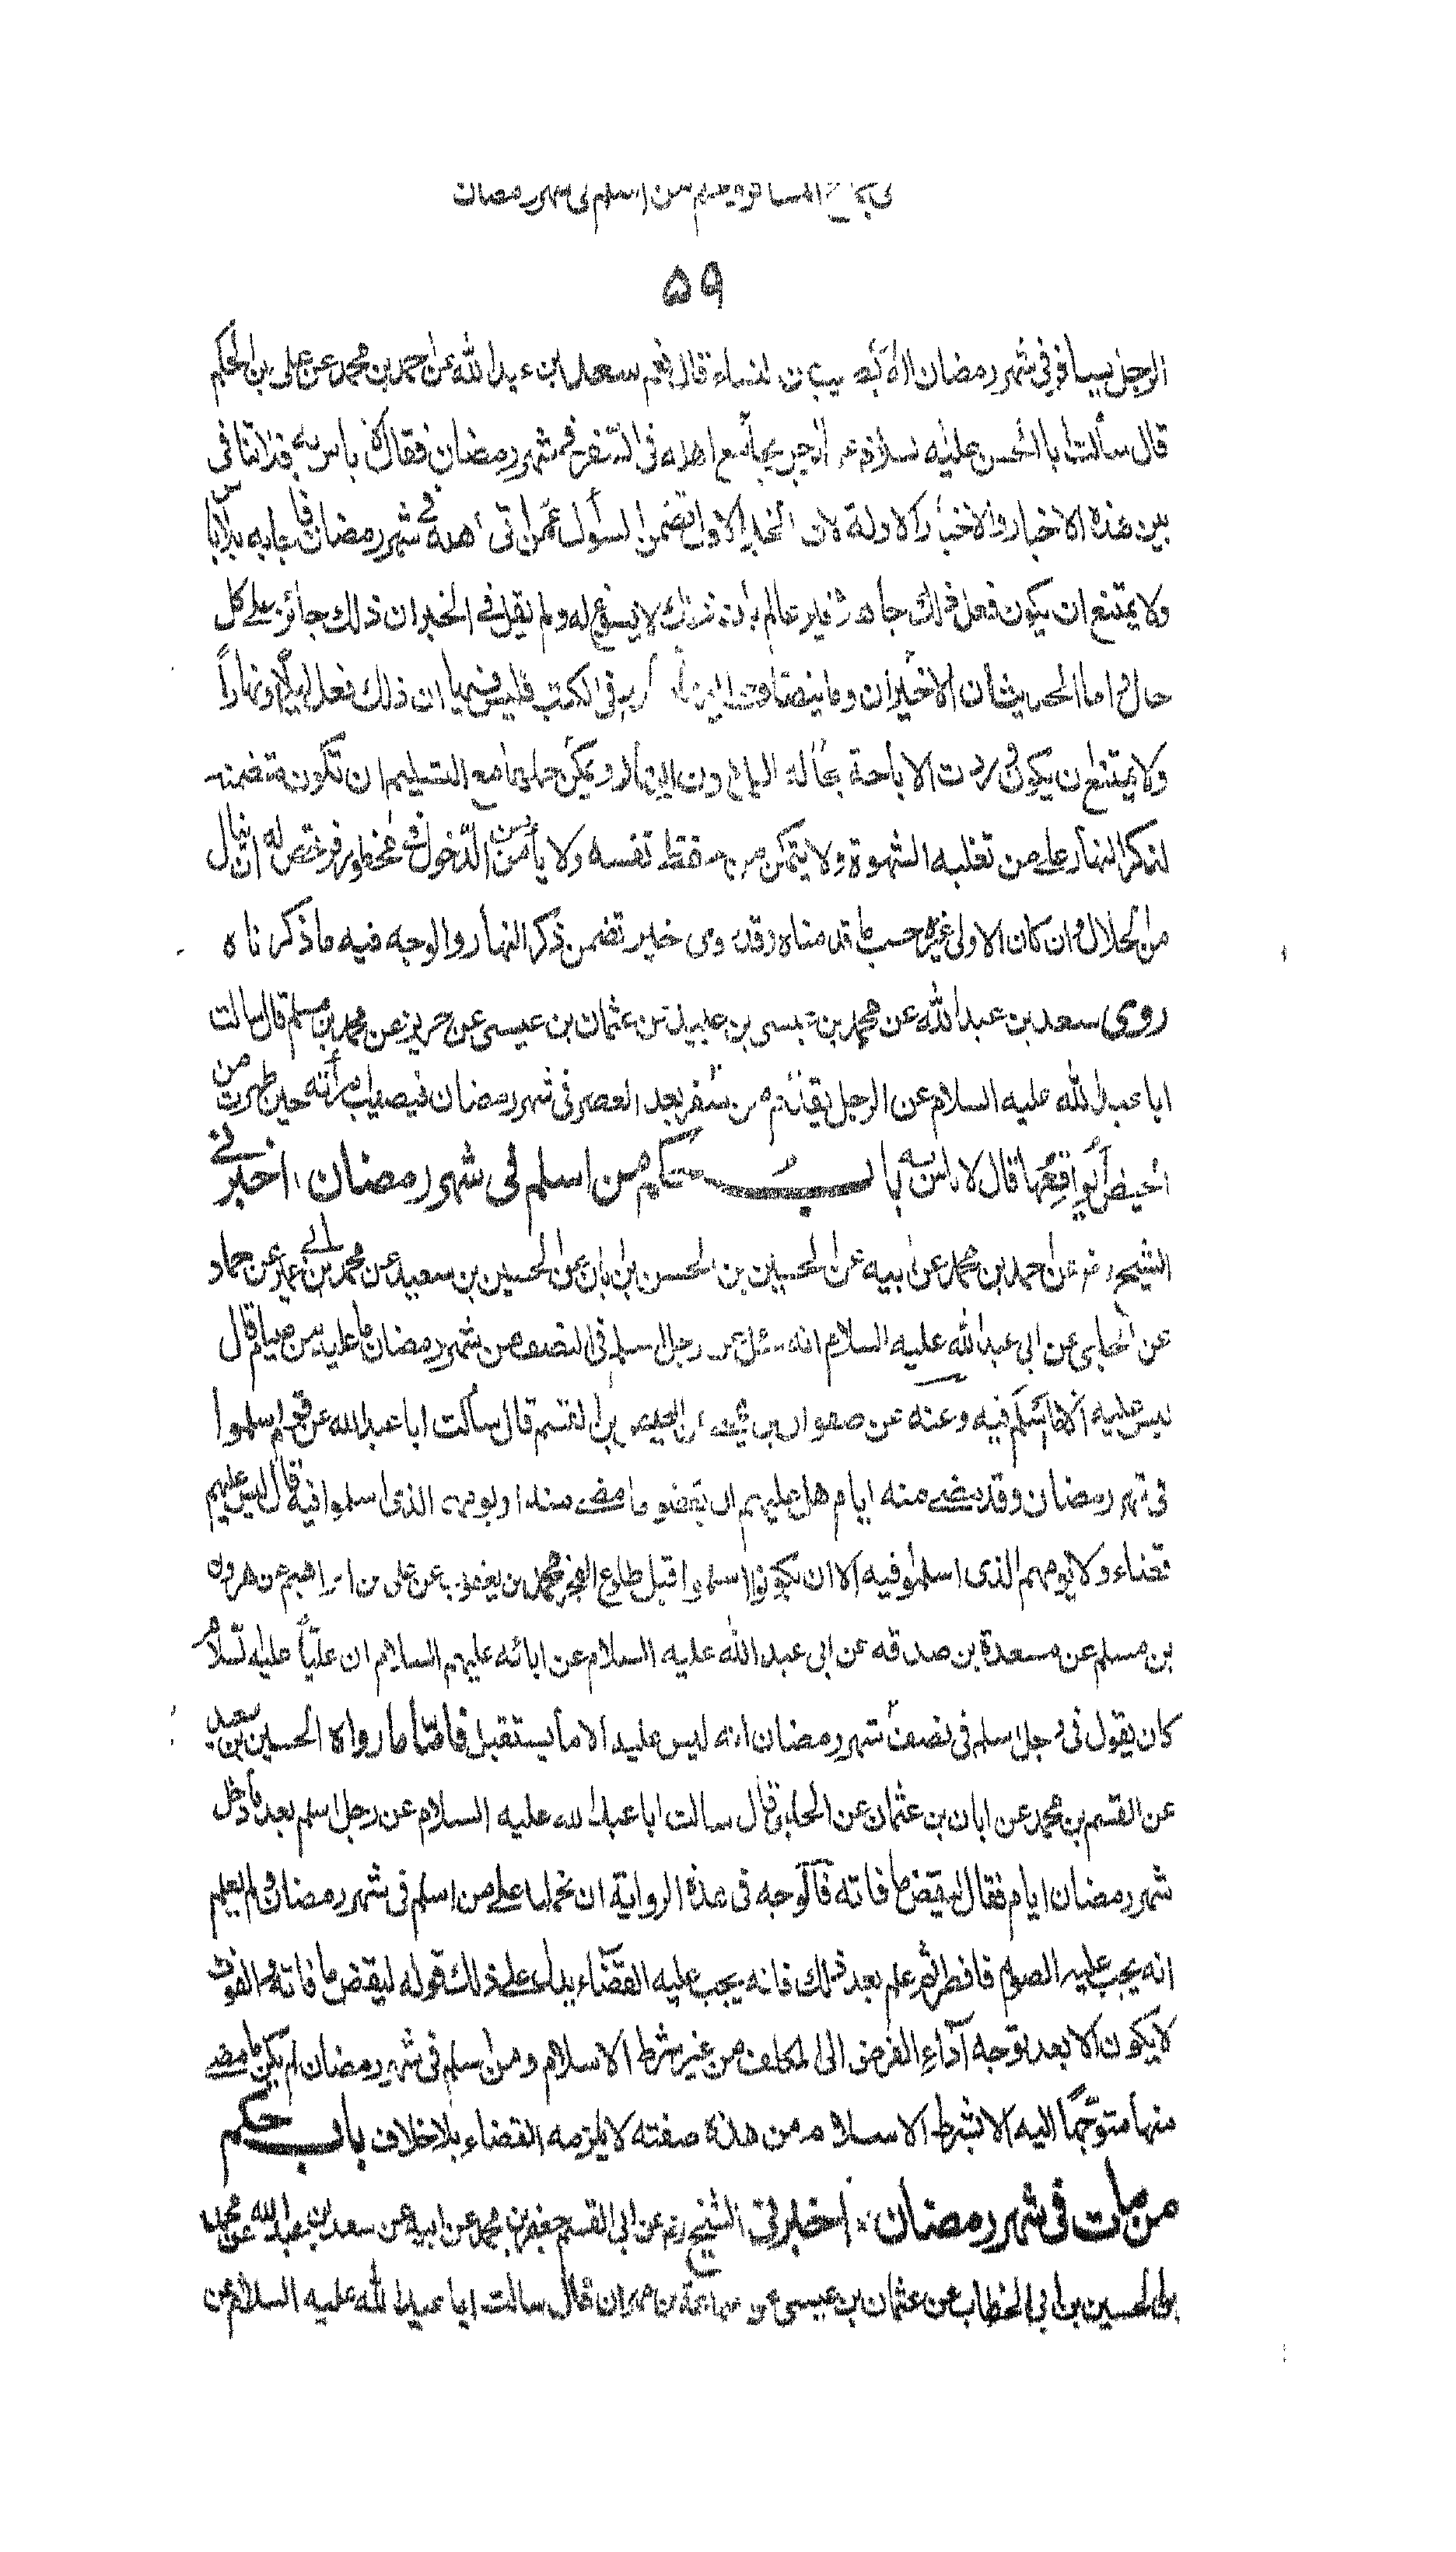 فی جماع المسافر وحکم من اسلم فی شهر رمضان
۵۹
الرجل یسافر فی شهر رمضان اله ان یصیب من النساء قال نعم سعد بن عبد الله عن احمد بن محمد عن علی بن الحکم
قال سألت ابا الحسن علیه السلام عن الرجل یجامع اهله فی السفر فی شهر رمضان فقال لا باس به فلا تنافی
بین هذه الاخبار والاخبار الاولة لان الخبر الاول تضمن السؤال عمن اتی اهله فی شهر رمضان فاجابه بلا باس
ولا یمتنع ان یکون فعل ذلك جاهلا غیر عالم بان ذلك لا یسوغ له ولم یقل فی الخبر ان ذلك جائز علی کل
حال واما الحدیثان الاخیران وما ینضاف الیهما فی الکتب فلیس فیها ان ذلك فعل لیلا ونهاراً
ولا یمتنع ان یکون وردت الاباحة بحاله اللیل دون النهار ویمکن حملها مع التسلیم ان تکون متضمنه
لذکر النهار علی من تغلبه الشهوة ولا یتمکن من حفظ نفسه ولا یأمن من الدّخول فی محظور فرخص له ان ینال
من الحلال وان کان الاولی غیره حسب ما قدمناه وقد روی خبر تضمن ذکر النهار والوجه فیه ما ذکرناه
روی سعد بن عبد الله عن محمد بن عیسی بن عبید عن عثمان بن عیسی عن حریز عن محمد بن مسلم قال سالت
ابا عبد الله علیه السلام عن الرجل یقدم من سفر بعد العصر فی شهر رمضان فیصیب امرأته حین طهرت من
الحیض أیواقعها قال لا باس به باب حکم من اسلم فی شهر رمضان اخبرنی
الشیخ ره عن احمد بن محمد عن ابیه عن الحسین بن الحسن بن ابان عن الحسین بن سعید عن محمد بن ابی عمیر عن حماد
عن الحلبی عن ابی عبد الله علیه السلام انه سئل عن رجل اسلم فی النصف من شهر رمضان ما علیه من صیام قال
لیس علیه الا ما اسلم فیه وعنه عن صفوان بن یحیی عن العیص بن القسم قال سألت ابا عبد الله عن قوم اسلموا
فی شهر رمضان وقد مضی منه ایام هل علیهم ان یقضو ما مضی منه او یومهم الذی اسلموا فیه قال لیس علیهم
قضاء ولا یومهم الذی اسلموا فیه الا ان یکونوا اسلموا قبل طلوع الفجر محمد بن یعقوب عن علی بن ابراهیم عن هرون
بن مسلم عن مسعدة بن صدقه عن ابی عبد الله علیه السلام عن ابائه علیهم السلام ان علیّاً علیه السّلام
کان یقول فی رجل اسلم فی نصف شهر رمضان انه لیس علیه الا ما یستقبل فامّا ما رواه الحسین بن سعید
عن القسم بن محمد عن ابان بن عثمان عن الحلبی قال سالت ابا عبد الله علیه السلام عن رجل اسلم بعد ما دخل
شهر رمضان ایام فقال لیقض ما فاته فالوجه فی هذه الروایة ان نحملها علی من اسلم فی شهر رمضان ولم یعلم
انه یجب علیه الصوم فافطر ثم علم بعد ذلك فانه یجب علیه القضاء یدل علی ذلك قوله لیقض ما فاته والفوت
لا یکون الا بعد توجه أداء الفرض الی المکلف من غیر شرط الاسلام ومن اسلم فی شهر رمضان لم یکن ما مضی
منها متوجّهاً الیه الا بشرط الاسلام ومن هذه صفته لا یلزمه القضاء بلا خلاف باب حکم
من مات فی شهر رمضان اخبرنی الشیخ ره عن ابی القسم جعفر بن محمد عن ابیه عن سعد بن عبد الله عن محمد
بن الحسین بن ابی الخطاب عن عثمان بن عیسی عن سماعة بن مهران قال سالت ابا عبد الله علیه السلام عن